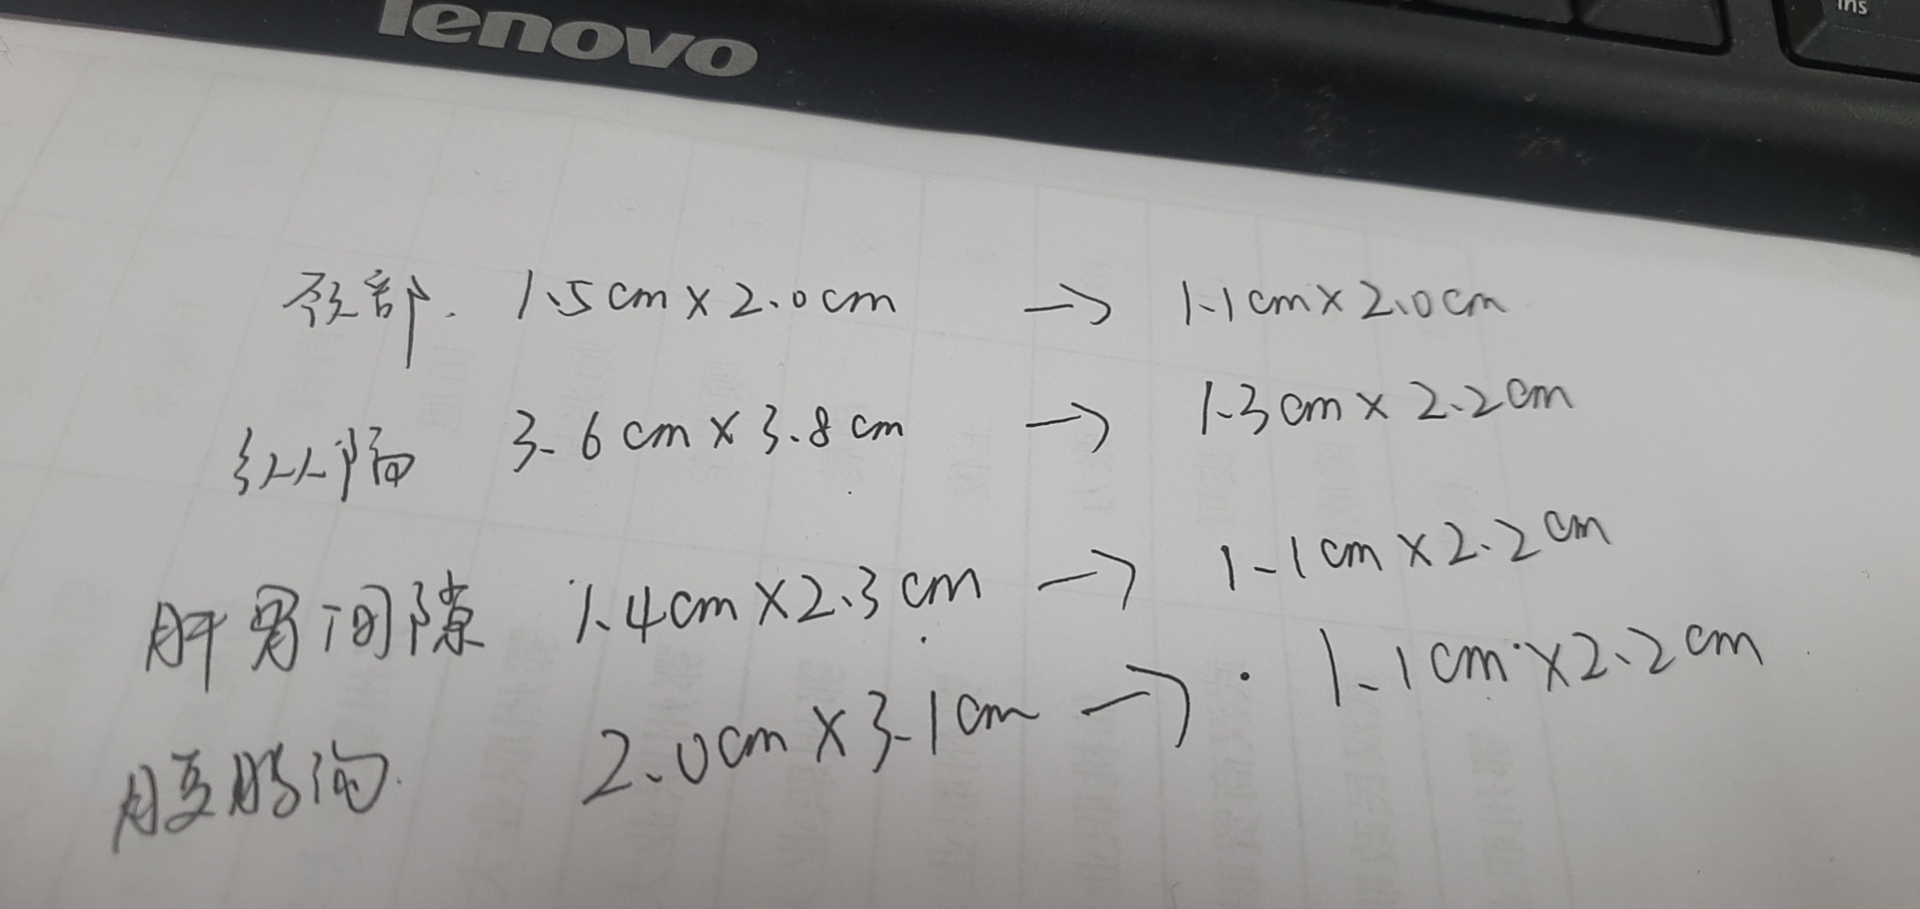 lenovo
ins
颈部. 1.5cm×2.0cm → 1.1cm×2.0cm
纵隔 3.6cm×3.8cm → 1.3cm×2.2cm
肝胃间隙 1.4cm×2.3cm → 1.1cm×2.2cm
腹股沟. 2.0cm×3.1cm → 1.1cm×2.2cm